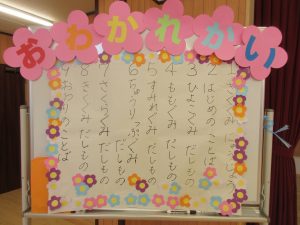 おわかれかい
1 さくらぐみ にゅうじょう
2 はじめのことば
3 ひよこぐみ だしもの
4 ももぐみ だしもの
5 すみれぐみ だしもの
6 ちゅうりっぷぐみ だしもの
7 さくらぐみ だしもの
8 きくぐみ だしもの
9 おわりのことば